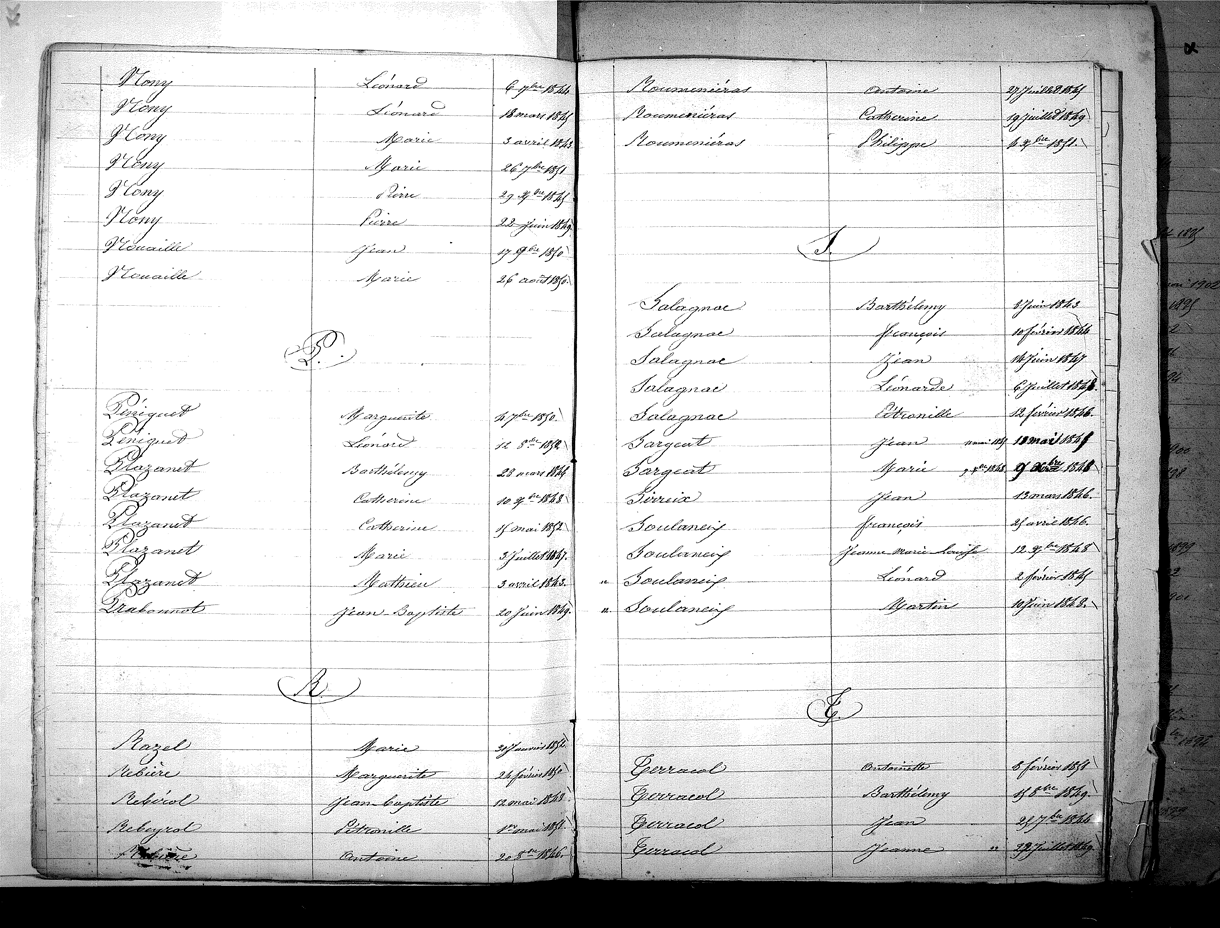 Nony Léonard 6 7bre 1844
Nony Léonard 18 mars 1845
Nony Marie 3 avril 1843
Nony Marie 26 7bre 1851
Nony Pierre 29 9bre 1845
Nony Pierre 22 Juin 1849
Nouaille Jean 17 9bre 1850
Nouaille Marie 26 août 1850
P.
Péniquet Marguerite 4 7bre 1850
Péniquet Léonard 12 8bre 1852
Plazanet Barthélemy 28 mars 1844
Plazanet Catherine 10 9bre 1848
Plazanet Catherine 15 mai 1852
Plazanet Marie 3 Juillet 1847
Plazanet Mathieu 3 avril 1843.
Prabonnot Jean-Baptiste 20 Juin 1849
R.
Razel Marie Janvier
Rebière Marguerite 24 février 1850
Rebérol Jean baptiste 12 mai 1848
Rebeyrol Pétronille 1er mai
Rebière Antoine 20 8bre 1846.
Roumeniéras Antoine 27 Juillet 1845
Roumeniéras Catherine 19 Juillet 1849
Roumeniéras Philippe 6 9bre 1851.
S.
Salagnac Barthélemy 8 Juin 1843
Salagnac françois 10 février 1844
Salagnac Jean Juin 1847
Salagnac Léonarde 6 Juillet
Salagnac Pétronille 12 février 1846
Sargeat Jean mai 1845
Sargeat Marie 9 Xbre 1848
Sirieix Jean 13 mars 1846.
Soulaneix françois 25 avril 1846.
Soulaneix Jeanne Marie Louise 12 9bre 1848
" Soulaneix Léonard 2 février 1845
" Soulaneix Martin 10 Juin 1848.
T.
Terracol Antoinette 8 février
Terracol Barthélemy 15 8bre 1849
Terracol Jean 25 7bre 1844
Terracol Jeanne " 22 Juillet 1849